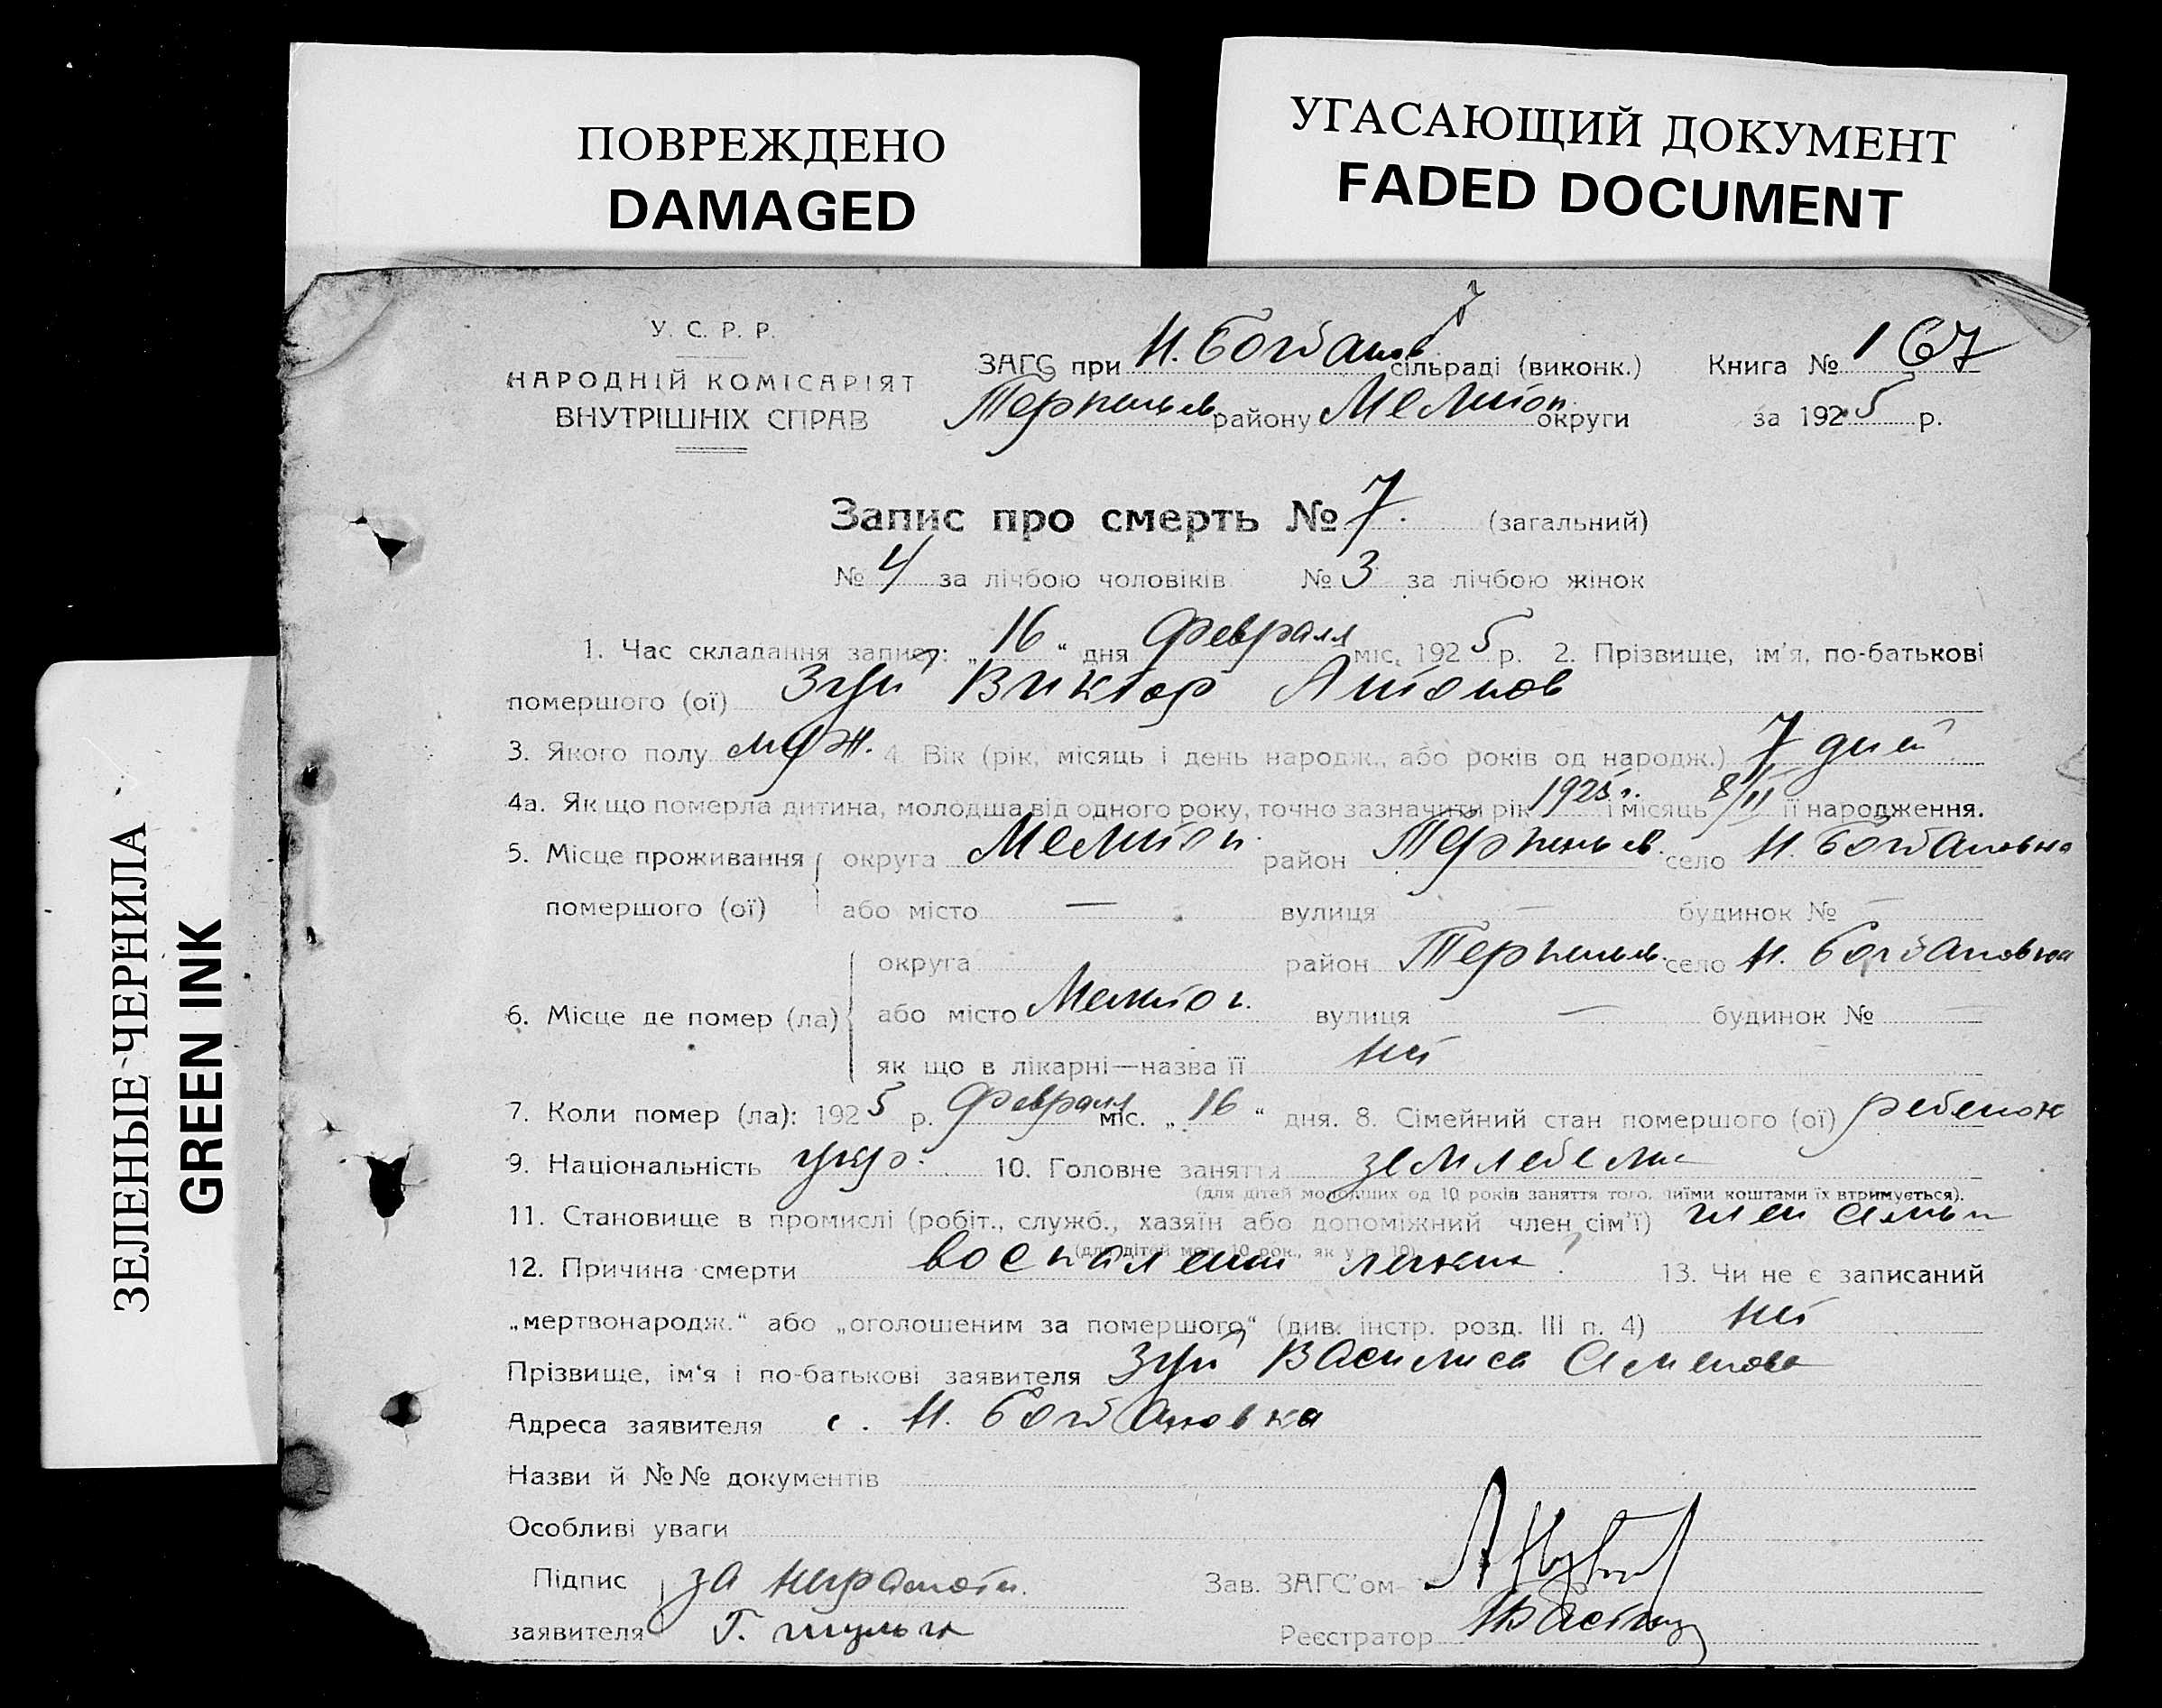 ПОВРЕЖДЕНО
DAMAGED
УГАСАЮЩИЙ ДОКУМЕНТ
FADED DOCUMENT
ЗЕЛЕНЫЕ ЧЕРНИЛА
GREEN INK
У. С. Р. Р.
НАРОДНІЙ КОМІСАРІЯТ
ВНУТРІШНІХ СПРАВ
ЗАГС при Н. Богданов сільраді (виконк.) Книга № 167
Терпеньев району Мелитоп. округи за 1925 р.
Запис про смерть № 7. (загальний)
№ 4 за лічбою чоловіків № 3 за лічбою жінок
1. Час складання запису: „16“ дня Февраля міс. 1925 р. 2. Прізвище, ім'я, по-батькові
помершого (ої) Зуй Виктор Антонов
3. Якого полу муж. 4. Вік (рік, місяць і день народж., або років од народж.) 7 дней
4а. Як що померла дитина, молодша від одного року, точно зазначити рік 1925 г. і місяць 8/II її народження.
5. Місце проживання округа Мелитоп. район Терпеньев. село Н. Богдановка
помершого (ої) або місто — вулиця — будинок № —
6. Місце де помер (ла) округа район Терпеньев. село Н. Богдановка
або місто Мелитоп. вулиця — будинок № —
як що в лікарні—назва її нет
7. Коли помер (ла): 1925 р. Февраля міс. „16“ дня. 8. Сімейний стан помершого (ої) ребенок
9. Національність укр. 10. Головне заняття земледелие
(для дітей молодших од 10 років заняття того, чиїми коштами їх втримується).
11. Становище в промислі (робіт., служб., хазяїн або допоміжний член сім'ї) член семьи
(для дітей мол. 10 рок., як у п. 10)
12. Причина смерти воспаление легких 13. Чи не є записаний
„мертвонародж.“ або „оголошеним за помершого“ (див. інстр. розд. III п. 4) нет
Прізвище, ім'я і по-батькові заявителя Зуй Василиса Семенова
Адреса заявителя с. Н. Богдановка
Назви й №№ документів
Особливі уваги
Підпис за неграмотн. Зав. ЗАГС'ом
заявителя Г. Реєстратор